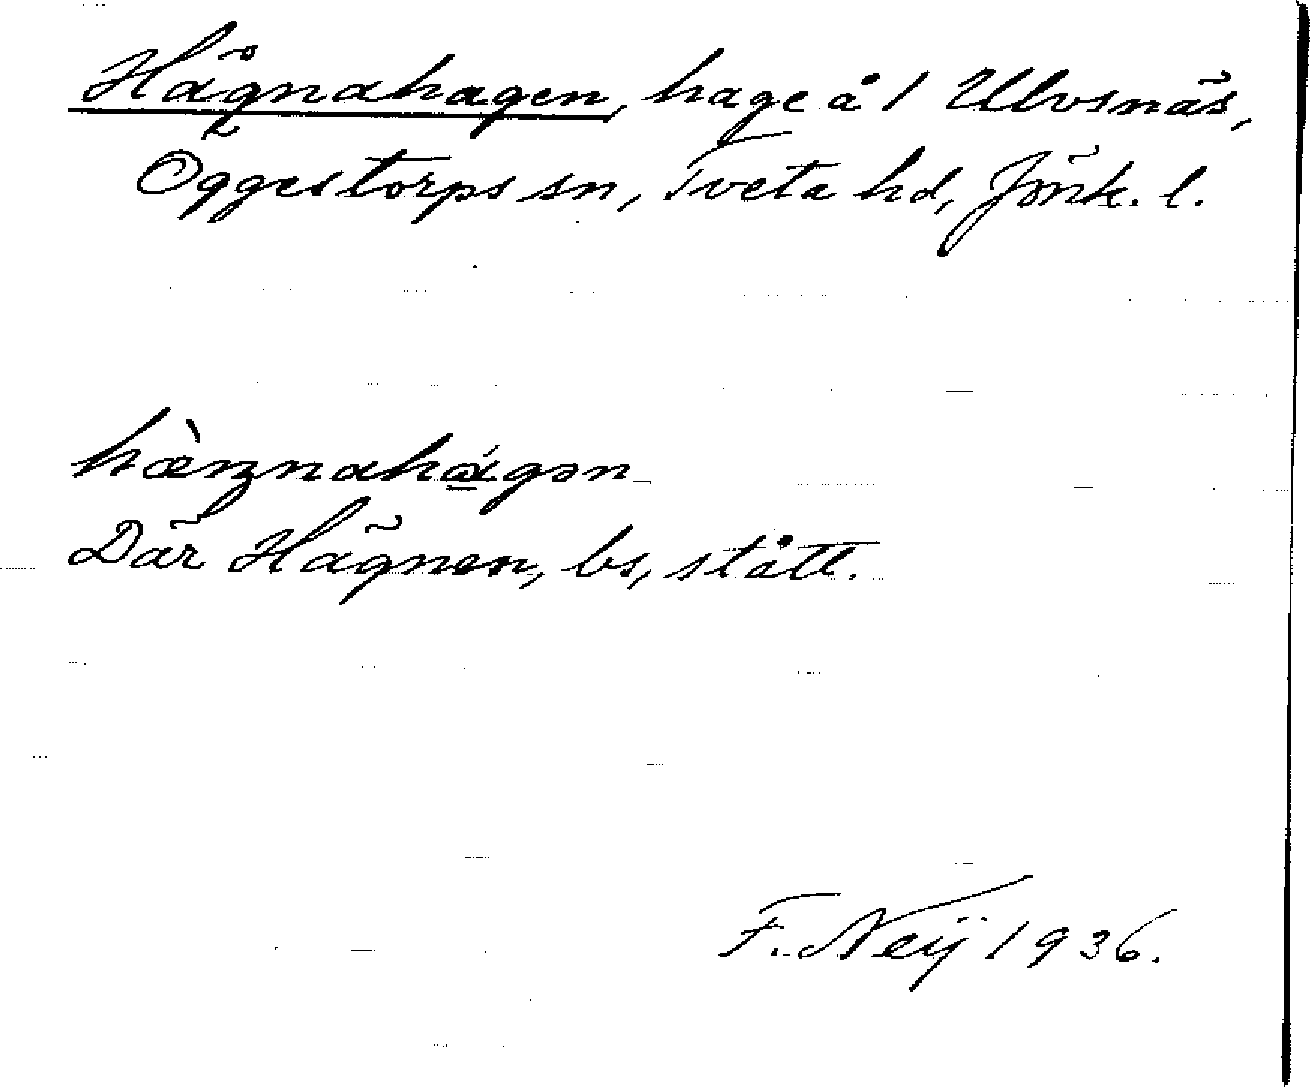 Hägnahagen, hage å 1 Ulvsnäs,
Öggestorps sn, Tveta hd, Jönk. l.
hæ̀ŋnahágən
Där Hägnen, bs, stått.
F. Neij 1936.